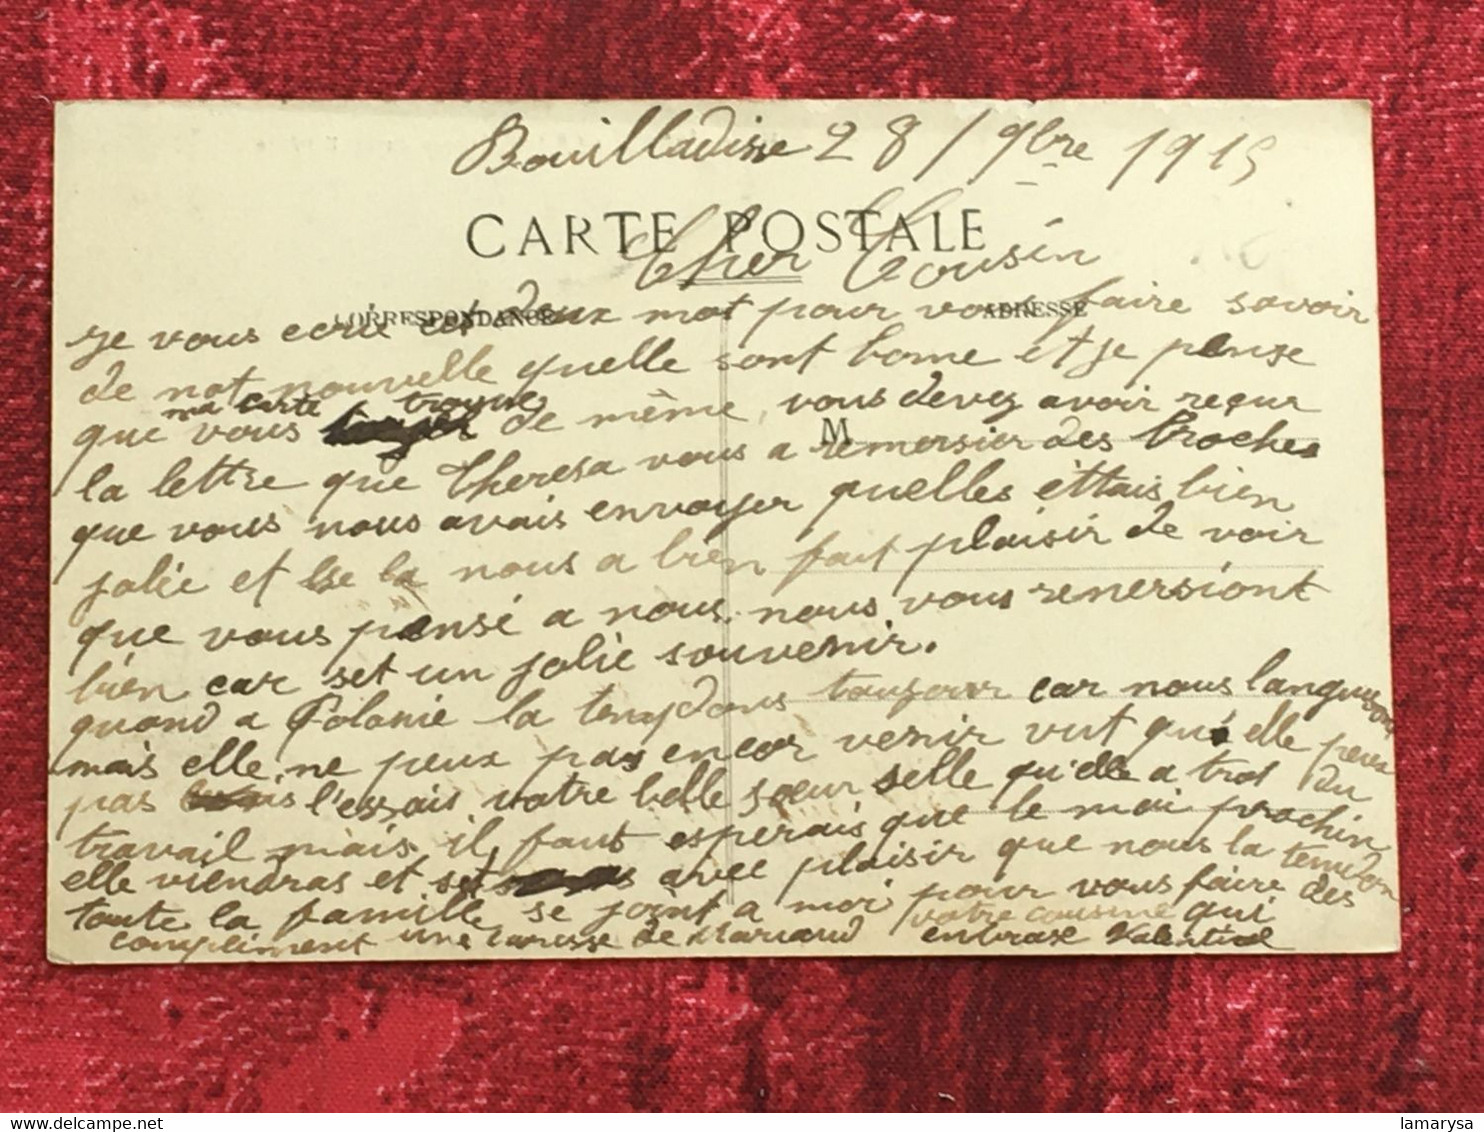 Bouilladisse 28/9bre 1915
CARTE POSTALE
Cher Cousin
CORRESPONDANCE
ADRESSE
M
Je vous ecrie ces deux mot pour vous faire savoir
de not nouvelle quelle sont bonne et je pense
ma carte trouve
que vous de même, vous devez avoir reçur
la lettre que Theresa vous a remersier des broches
que vous nous avais envoyer quelles ettais bien
jolie et se la nous a bien fait plaisir de voir
que vous pensé a nous. nous vous remersiont
bien car set un jolie souvenir.
quand a Colonie la tendons toujour car nous languisson
mais elle ne peux pas encor venir vut qu'elle peux
pas l'essais votre belle sœur selle qu'elle a trot du
travail mais il faut esperais que le moi prochin
elle viendras et set avec plaisir que nous la tendon
toute la famille se joint a moi pour vous faire des
compliment une de votre cousine qui
embrase Valentine
lamarysa